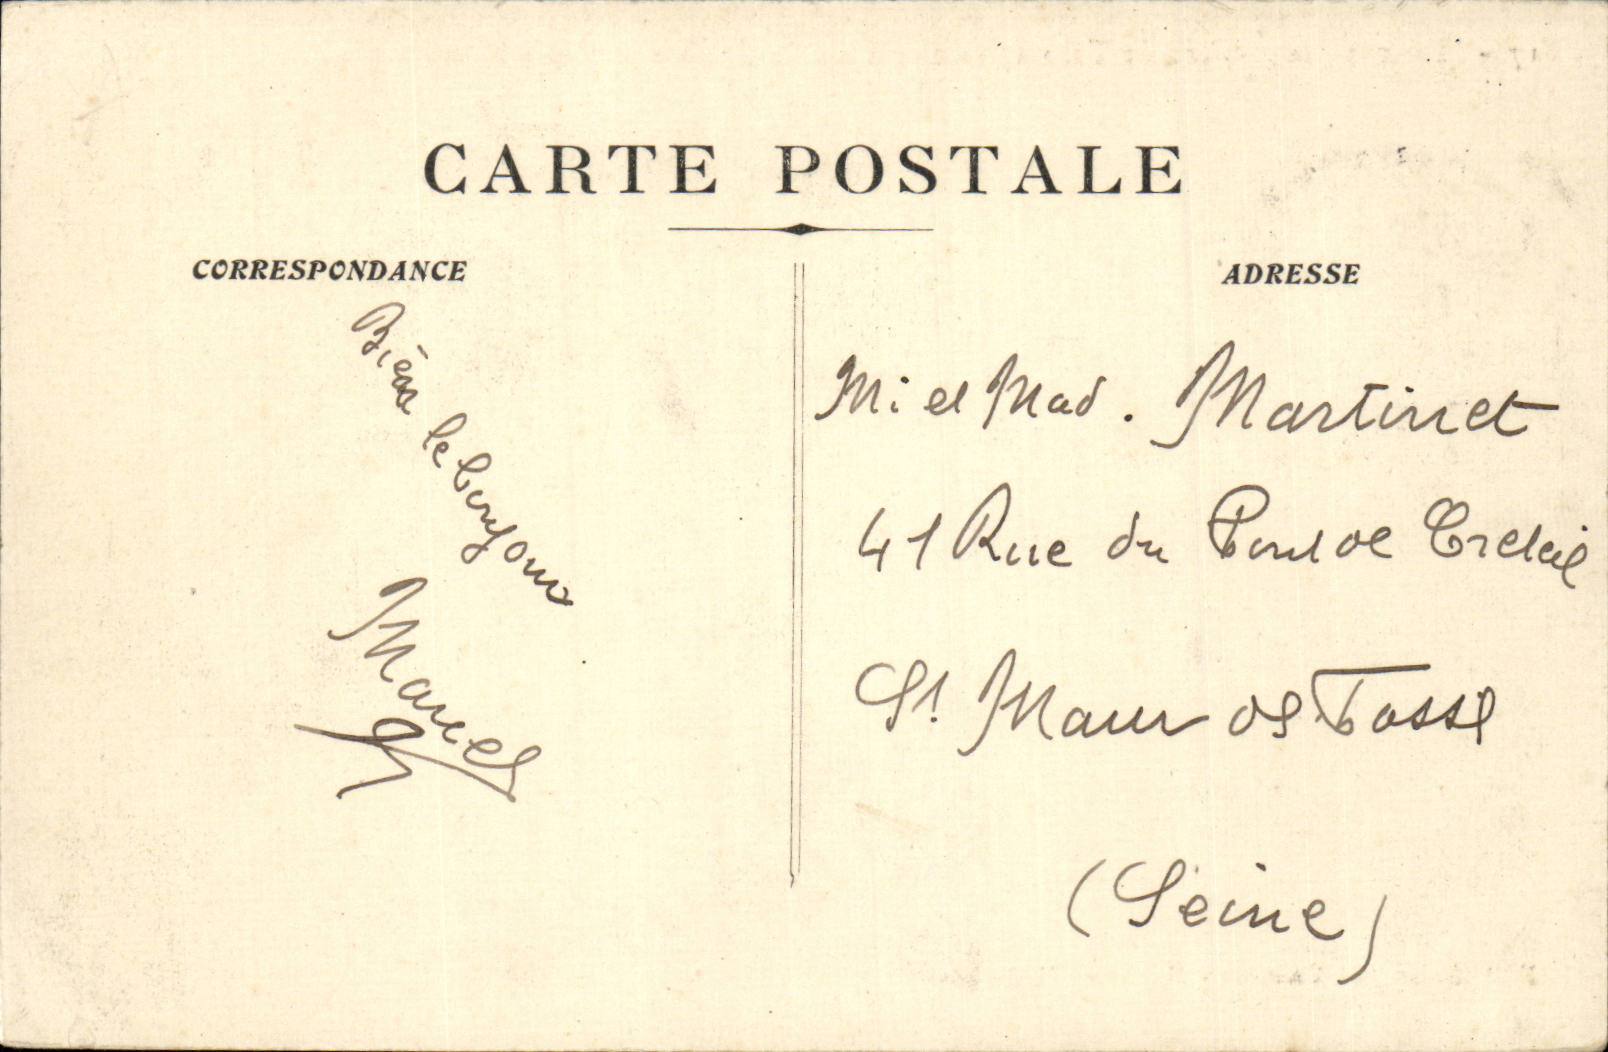 CARTE POSTALE
CORRESPONDANCE
Bien le bonjour
Marcel
ADRESSE
Mr et Mad. Martinet
41 Rue du Pont de Creteil
St Maur des Fossé
(Seine)